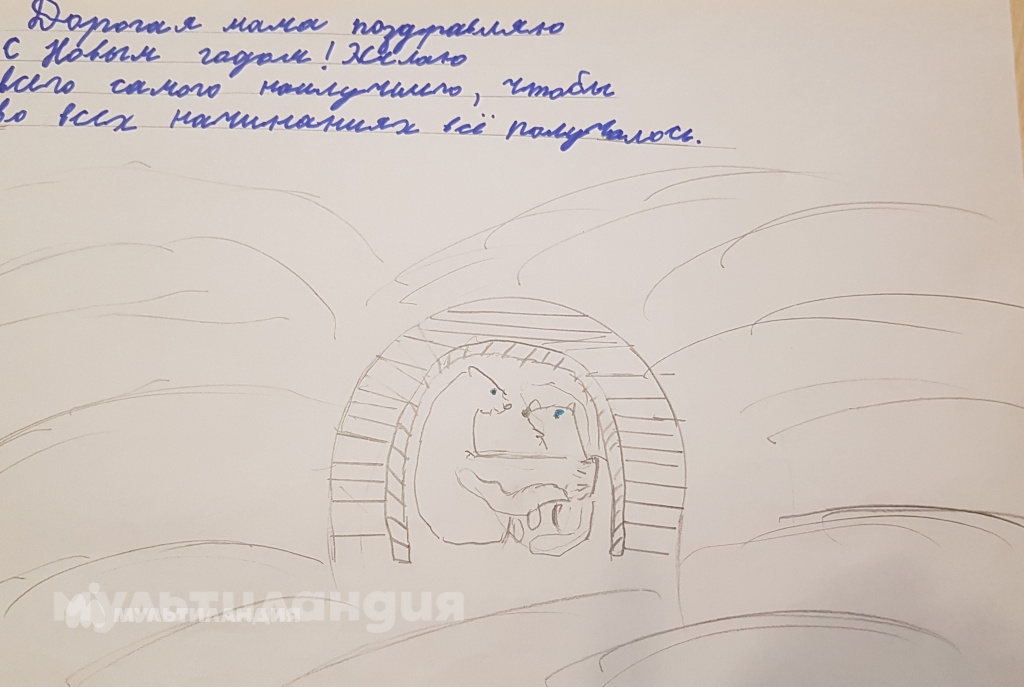 Дорогая мама поздравляю
с Новым годом! Желаю
всего самого наилучшего, чтобы
во всех начинаниях всё получалось.
мультиландия
МУЛЬТИЛАНДИЯ